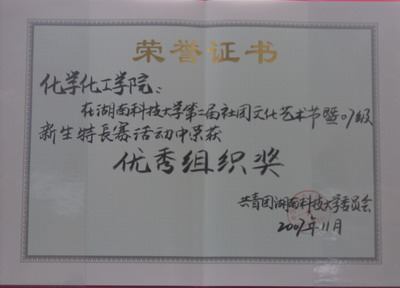 荣誉证书
化学化工学院：
在湖南科技大学第二届社团文化艺术节暨07级
新生特长赛活动中荣获
优秀组织奖
共青团湖南科技大学委员会
2007年11月